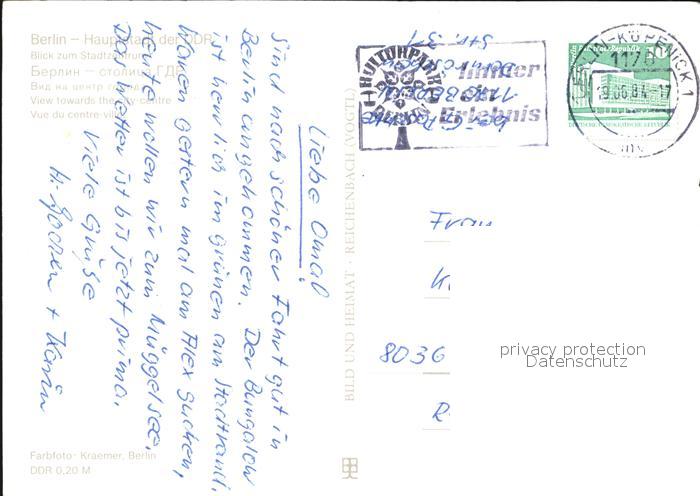 Berlin – Hauptstadt der DDR
Blick zum Stadtzentrum
Берлин – столица ГДР
Вид на центр города
View towards the city-centre
Vue du centre-ville
Liebe Oma!
Sind nach schöner Fahrt gut in
Berlin angekommen. Der Bungalow
ist herrlich im grünen am Stadtrand.
Waren gestern mal am Alex gucken,
heute wollen wir zum Müggelsee.
Das Wetter ist bis jetzt prima.
Viele Grüße
H. Jochen + Karin
Farbfoto: Kraemer, Berlin
DDR 0,20 M
BILD UND HEIMAT · REICHENBACH (VOGTL)
KULTURPARK
Immer
Erlebnis
BERLIN-KÖPENICK 1
1170
19.06.84-17
10
DEUTSCHE DEMOKRATISCHE REPUBLIK
Frau
K
8036
R
privacy protection
Datenschutz